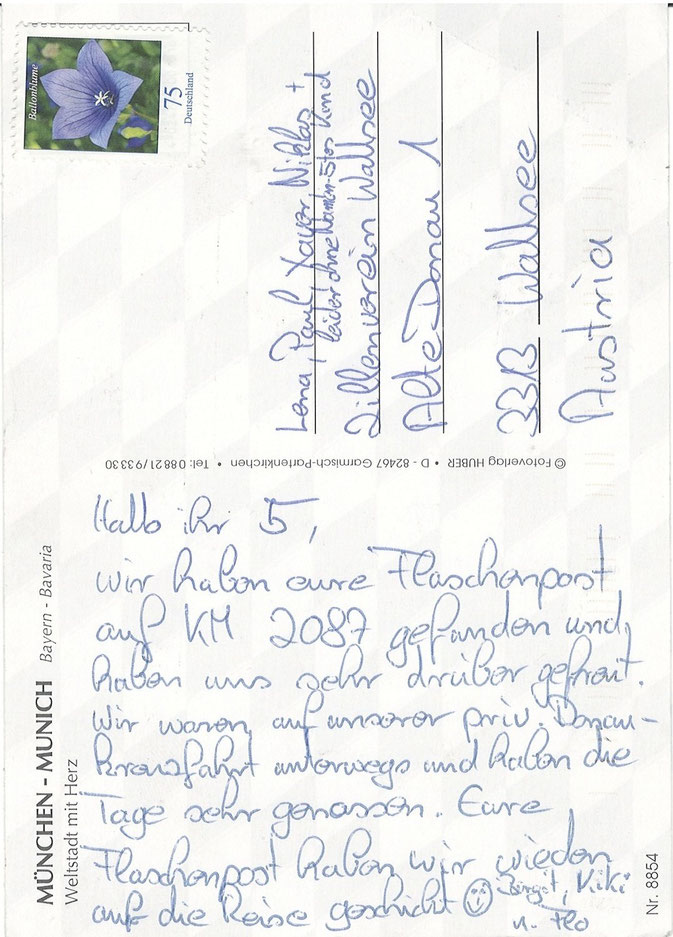 MÜNCHEN - MUNICH Bayern - Bavaria
Weltstadt mit Herz
Hallo ihr 5,
wir haben eure Flaschenpost
auf KM 2087 gefunden und
haben uns sehr drüber gefreut.
Wir waren auf unserer priv. Donau-
kreuzfahrt unterwegs und haben die
Tage sehr genossen. Eure
Flaschenpost haben wir wieder
auf die Reise geschickt Birgit, Kiki
u. Flo
Nr. 8854
© Fotoverlag HUBER • D - 82467 Garmisch-Partenkirchen • Tel: 0 88 21 / 9 33 30
Ballonblume
75
Deutschland
Lena, Paul, Xaver, Niklas +
leider ohne Namen-5tes Kind
Zillenverein Wallsee
Alte Donau 1
3313 Wallsee
Austria